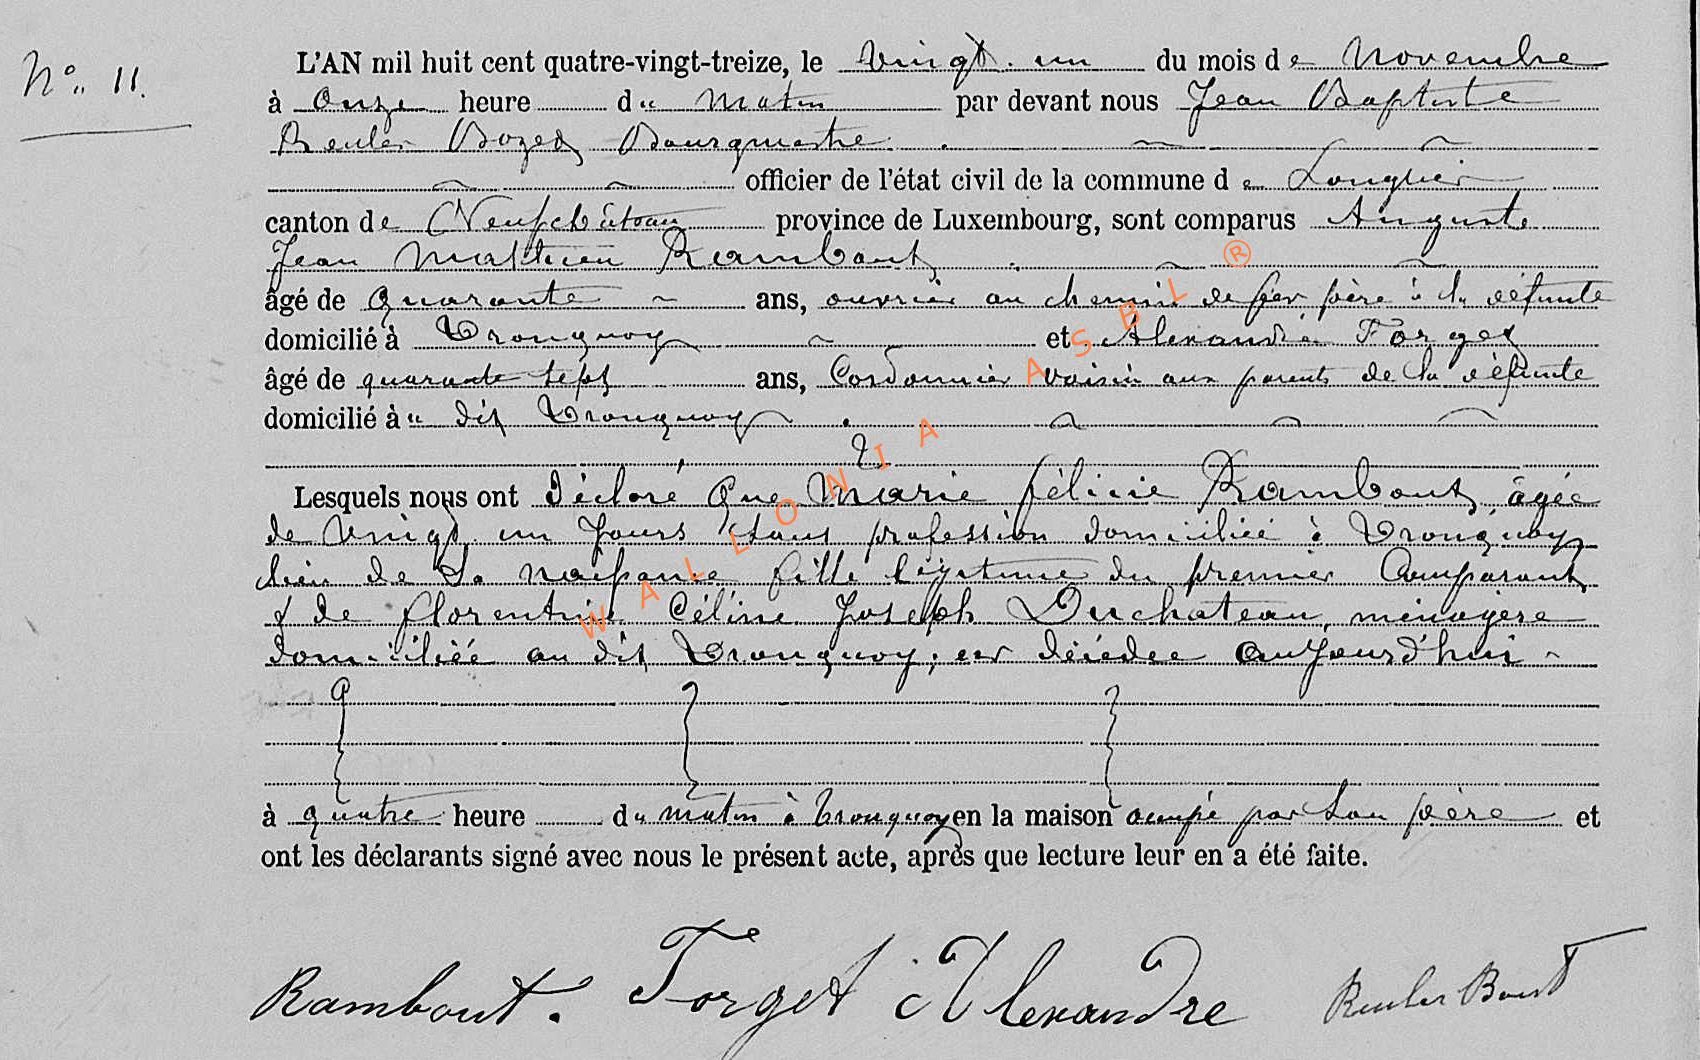 N° 11.
L'AN mil huit cent quatre-vingt-treize, le vingt un du mois de Novembre
à onze heure du matin par devant nous Jean Baptiste
Reuler Bozet Bourgmestre
officier de l'état civil de la commune de Longlier
canton de Neufchâteau province de Luxembourg, sont comparus Auguste
Jean Mathieu Rambout
âgé de quarante ans, ouvrier au chemin de fer père à la défunte
domicilié à Tronquoy et Alexandre Forget
âgé de quarante sept ans, Cordonnier voisin aux parents de la défunte
domicilié à u dit Tronquoy
Lesquels nous ont déclaré que Marie félicie Rambout, âgée
de vingt un jours sans profession domiciliée à Tronquoy
lieu de sa naissance fille légitime du premier Comparant
& de florentine Céline Joseph Duchateau, ménagère
domiciliée au dit Tronquoy, est décédée aujourd'hui
à quatre heure du matin à Tronquoy en la maison occupé par son père et
ont les déclarants signé avec nous le présent acte, après que lecture leur en a été faite.
Rambout. Forget Alexandre Reuler
WALLONIA ASBL ®